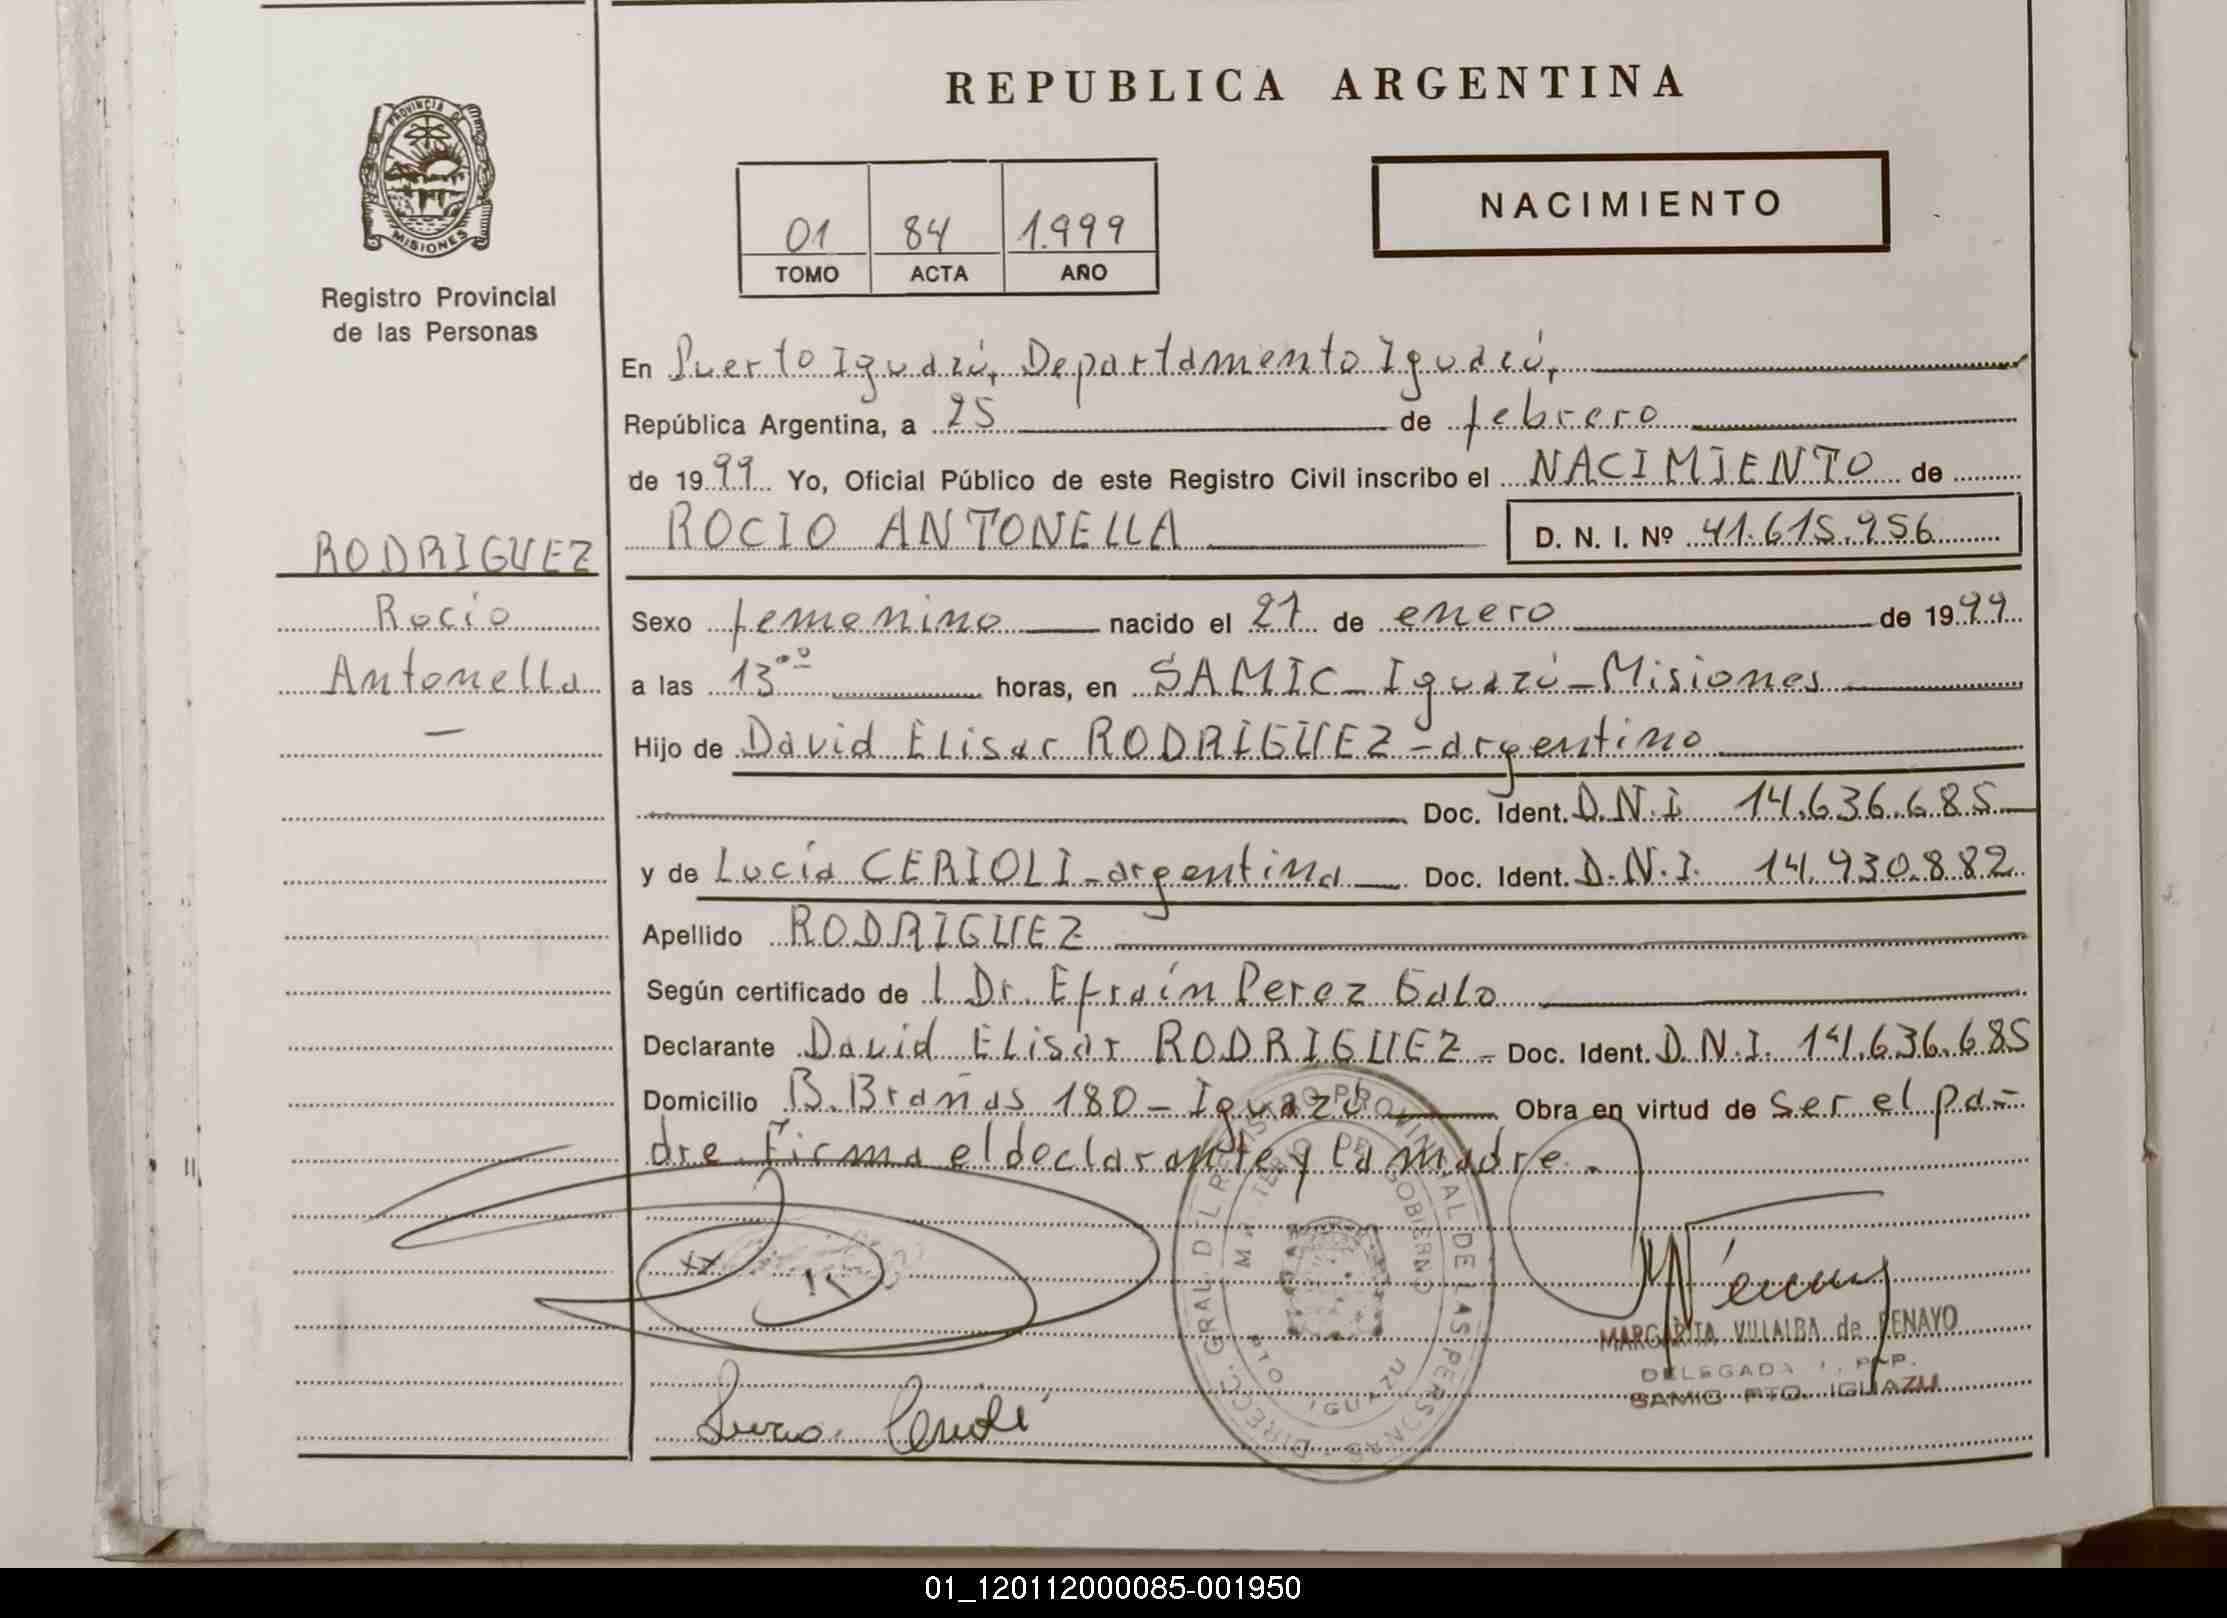 REPUBLICA ARGENTINA
PROVINCIA DE
MISIONES
Registro Provincial
de las Personas
NACIMIENTO
01 84 1.999
TOMO ACTA AÑO
En Puerto Iguazú, Departamento Iguazú,
República Argentina, a 25 de febrero
de 1999 Yo, Oficial Público de este Registro Civil inscribo el NACIMIENTO de
ROCIO ANTONELLA D. N. I. Nº 41.615.956
RODRIGUEZ
Rocío
Antonella
Sexo femenino nacido el 27 de enero de 1999
a las 13°° horas, en SAMIC - Iguazú - Misiones
Hijo de David Elisar RODRIGUEZ - argentino
Doc. Ident. D.N.I 14.636.685
y de Lucía CERIOLI - argentina Doc. Ident. D.N.I. 14.930.882
Apellido RODRIGUEZ
Según certificado de l Dr. Efraín Perez Galo
Declarante David Elisar RODRIGUEZ - Doc. Ident. D.N.I. 14.636.685
Domicilio B. Brañas 180 - Iguazú Obra en virtud de ser el pa=
dre. Firma el declarante y la madre.
DIRECC. GRAL DEL REGISTRO PROVINCIAL DE LAS PERSONAS
DE GOBIERNO
PTO IGUAZU
MARGARITA VILLALBA de BENAYO
DELEGADA
SAMIC PTO. IGUAZU
01_120112000085-001950